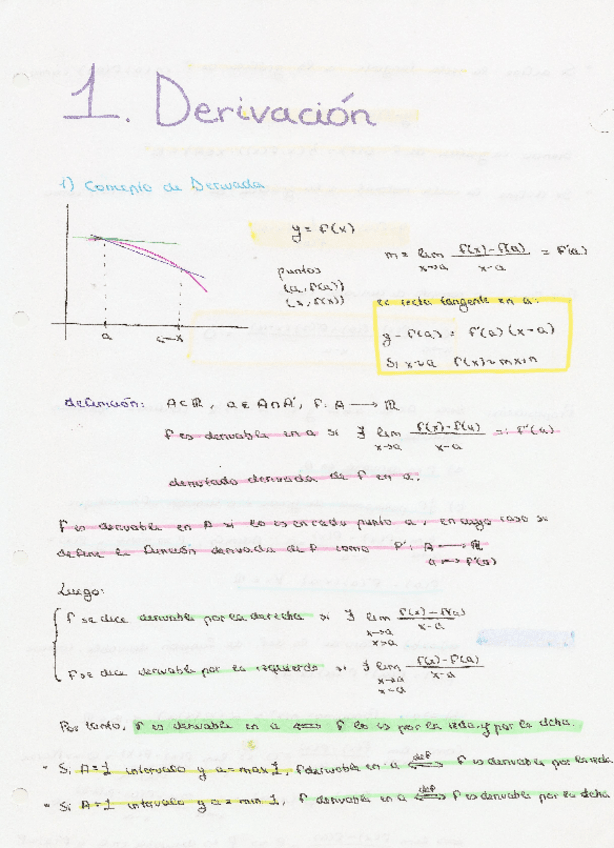 1. Derivación
1) Concepto de Derivada
y = f(x)
m = lim f(x)-f(a) / x-a = f'(a)
x→a
puntos
(a, f(a))
(x, f(x))
a ←x
ec recta tangente en a:
y - f(a) = f'(a)(x-a)
Si x≈a f(x)≈mx+n
definición: A⊂ℝ, a∈A∩A', f: A → ℝ
f es derivable en a si ∃ lim f(x)-f(a) / x-a =: f'(a)
x→a
denotado derivada de f en a.
f es derivable en A si lo es en cada punto a, en cuyo caso se
define la función derivada de f como f': A → ℝ
a → f'(a)
Luego:
f se dice derivable por la derecha si ∃ lim f(x)-f(a) / x-a
x→a
x>a
f se dice derivable por la izquierda si ∃ lim f(x)-f(a) / x-a
x→a
x<a
Por tanto, f es derivable en a ⟺ f lo es por la izda. y por la dcha.
- Si A=I intervalo y a=max I, f derivable en a ⟺def f es derivable por la izda.
- Si A=I intervalo y a=min I, f derivable en a ⟺def f es derivable por la dcha